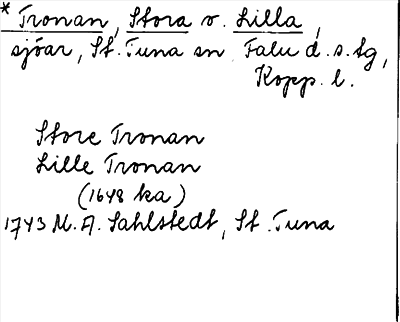 * Tronan, Stora o. Lilla,
sjöar, St. Tuna sn Falu d.s. tg,
Kopp. l.
Store Tronan
Lille Tronan
(1648 ka)
1743 M. A. Sahlstedt, St. Tuna